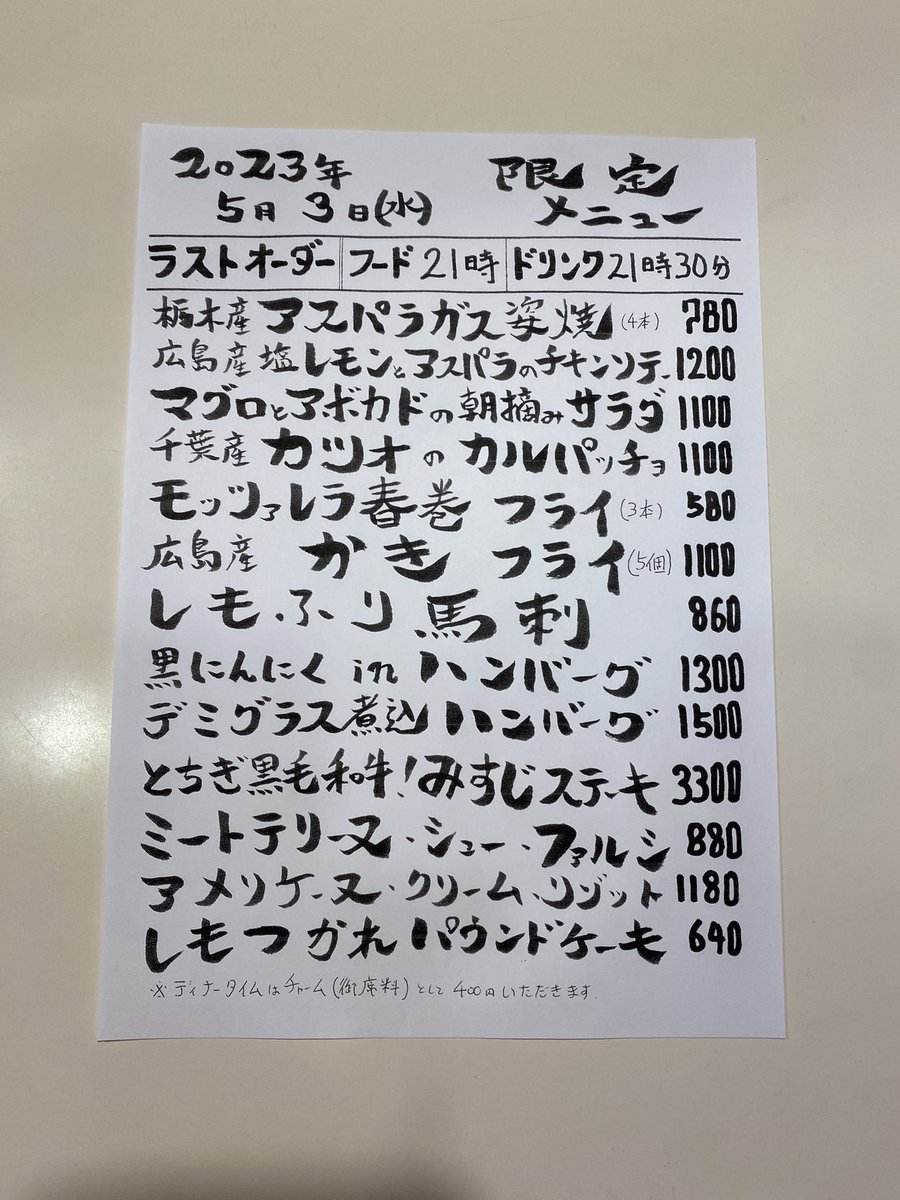 2023年 限定
5月3日(水) メニュー
ラストオーダー フード21時 ドリンク21時30分
栃木産アスパラガス姿焼(4本) 780
広島産塩レモンとアスパラのチキンソテー 1200
マグロとアボカドの朝摘みサラダ 1100
千葉産カツオのカルパッチョ 1100
モッツァレラ春巻フライ(3本) 580
広島産かきフライ(5個) 1100
しもふり馬刺 860
黒にんにくinハンバーグ 1300
デミグラス煮込ハンバーグ 1500
とちぎ黒毛和牛!みすじステーキ 3300
ミートテリーヌ・シュー・ファルシ 880
アメリケーヌ・クリーム・リゾット 1180
しもつかれパウンドケーキ 640
※ディナータイムはチャーム(御席料)として400円いただきます.